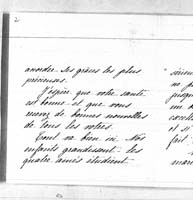 2
accorder ses grâces les plus
précieuses.
J'espère que votre santé
est bonne et que vous
recevez de bonnes nouvelles
de tous les vôtres.
Tout va bien ici. Nos
enfants grandissent. les
quatre aînés étudient
ne p
jusqu
et si
fait
mar